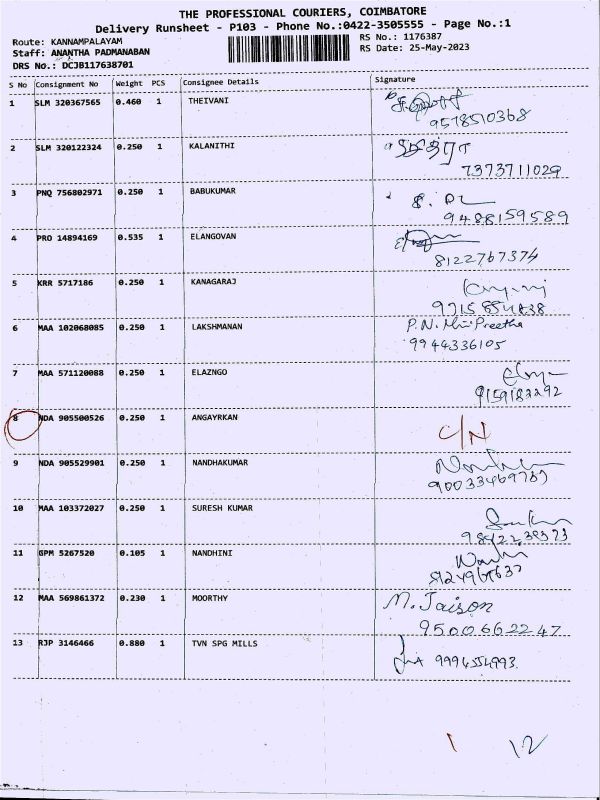 THE PROFESSIONAL COURIERS, COIMBATORE
Delivery Runsheet - P103 - Phone No.:0422-3505555 - Page No.:1
Route: KANNAMPALAYAM
Staff: ANANTHA PADMANABAN
DRS No.: DCJB117638701
RS No.: 1176387
RS Date: 25-May-2023
S No Consignment No Weight PCS Consignee Details Signature
1 SLM 320367565 0.460 1 THEIVANI
9578510368
2 SLM 320122324 0.250 1 KALANITHI
7373711029
3 PNQ 756802971 0.250 1 BABUKUMAR
9488159589
4 PRO 14894169 0.535 1 ELANGOVAN
8122767374
5 KRR 5717186 0.250 1 KANAGARAJ
6 MAA 102068085 0.250 1 LAKSHMANAN P.N. Preetha
9944336105
7 MAA 571120088 0.250 1 ELAZNGO
9159182292
8 NDA 905500526 0.250 1 ANGAYRKAN C/N
9 NDA 905529901 0.250 1 NANDHAKUMAR
10 MAA 103372027 0.250 1 SURESH KUMAR
11 GPM 5267520 0.105 1 NANDHINI
12 MAA 569861372 0.230 1 MOORTHY M. Jaison
9500662247
13 RJP 3146466 0.880 1 TVN SPG MILLS
9994554993
1 12